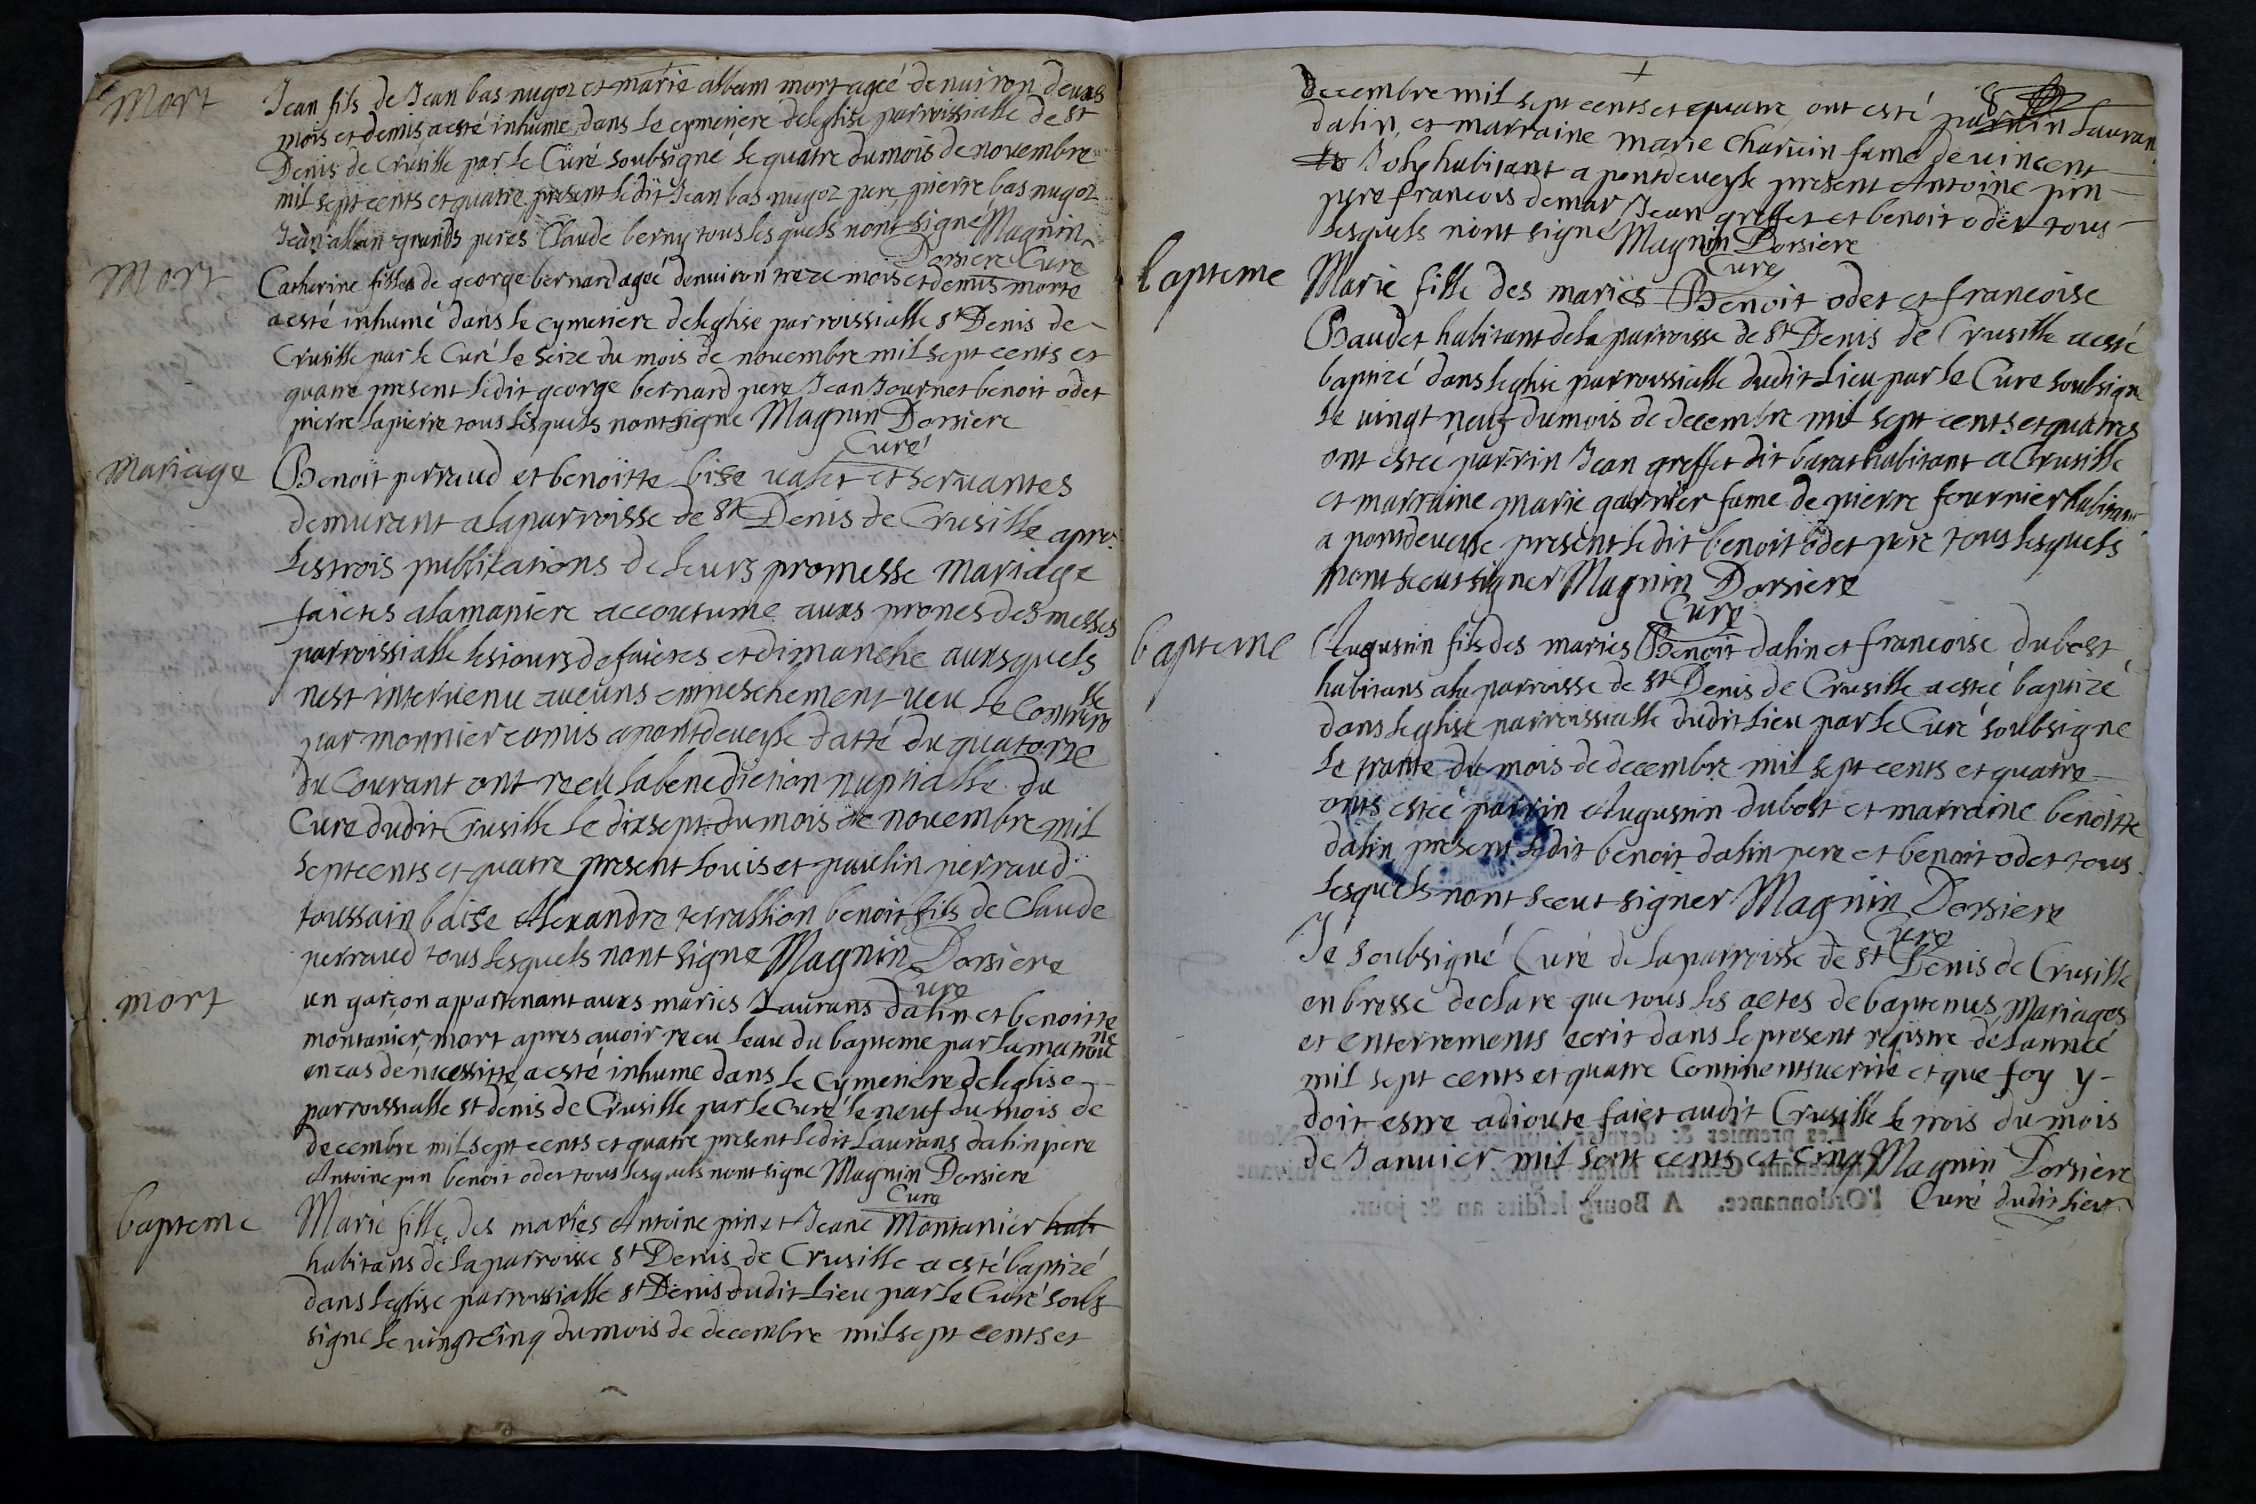 Mort
Jean fils de Jean bas nugoz et marie alban mort ageé denuiron deuxs
mois et demis a esté inhumé dans le cymetiere deleglise parroissialle de st
Denis de Crusille par le Curé soubsigné le quatre du mois de novembre
mil sept cents et quatre present ledit Jean bas nugoz pere, pierre bas nugoz
Jean alban grands peres Claude berny tous lesquels nont signé Magnin
Dorsiere Curé
Mort
Catherine fillea de george bernard ageé denuiron treze mois et demis morte
a esté inhumé dans le cymetiere deleglise parroissialle st Denis de
Crusille par le Curé le seize du mois de novembre mil sept cents et
quatre present ledit george bernard pere Jean Journet benoit odet
pierre lapierre tous lesquels nont signe Magnin Dorsiere
Curé
Mariage
Benoit perraud et benoitte bise ualet et seruantes
demurant a laparroisse de st Denis de Crusille apres
les trois publications de leurs promesse mariage
faictes alamaniere accoutume auxs prones des messes
parroissialle les iours de faictes et dimanche auxsquels
nest intervenu aucuns empeschement ueu le Controlle
par monnier comis apontdeueyle datté du quatorze
du Courant ont receu labenediction nuptialle du
Curé dudit Crusille le dixsept du mois de novembre mil
sept cents et quatre present Louis et paulin perraud
toussain baise Alexandre terrallion benoit fils de Claude
perraud tous lesquels nont signe Magnin Dorsiere
Curé
mort
un garçon appartenant auxs maries Laurans dalin et benoitte
montanier, mort apres auoir receu leau du bapteme par lamatrone
en cas de nicessitte, a esté inhumé dans le Cymetiere deleglise
parroissialle st denis de Crusille par le Curé le neuf du mois de
decembre mil sept cents et quatre present ledit Laurans dalin pere
Antoine pin benoit odet tous lesquels nont signe Magnin Dorsiere
Curé
bapteme
Marie fille des maries Antoine pin et Jeane Montanier hab
habitans de laparroisse st Denis de Crusille a esté baptizé
dans leglise parroissialle st Denis dudit Lieu par le Curé soubs
signe le vingt cinq du mois de decembre mil sept cents et
8
decembre mil sept cents et quatre ont esté parrin Lauran
dalin, et marraine marie charuin fame de vincent
Joly habitant a pontdeueyle present Antoine pin
pere francois demar Jean greffet et benoit odet tous
lesquels nont signé Magnin Dorsiere
Curé
bapteme
Marie fille des maries Benoit odet et francoise
Baudet habitant dela parroisse de st Denis de Crusille a esté
baptizé dans leglise parroissialle dudit Lieu par le Cure soubsigne
le vingt neuf du mois de decembre mil sept cents et quatres
ont esteé parrin Jean greffet dit barat habitant a Crusille
et marraine marie garnier fame de pierre fournier habitant
a pontdeueyle present ledit benoit odet pere tous lesquels
nont sceut signer Magnin Dorsiere
Curé
bapteme
Augustin fils des maries Benoit dalin et francoise dubost
habitans ala parroisse de st Denis de Crusille a esteé baptizé
dans leglise parroissialle dudit Lieu par le Curé soubsigne
le trante du mois de decembre mil sept cents et quatre
onts esteé parrin Augustin dubost et marraine benoitte
dalin present ledit benoit dalin pere et benoit odet tous
lesquels nont sceut signer Magnin Dorsiere
Curé
Jé soubsigné Curé de la parroisse de st Denis de Crusille
en bresse declare que tous les actes de baptemes, Mariages
et enterrements ecrit dans le present registre de lanneé
mil sept cents et quatre Continents uerité et que foy y
doit estre adiouté faict audit Crusille le trois du mois
de Januier mil sept cents et cinq Magnin Dorsiere
Curé dudit Lieu